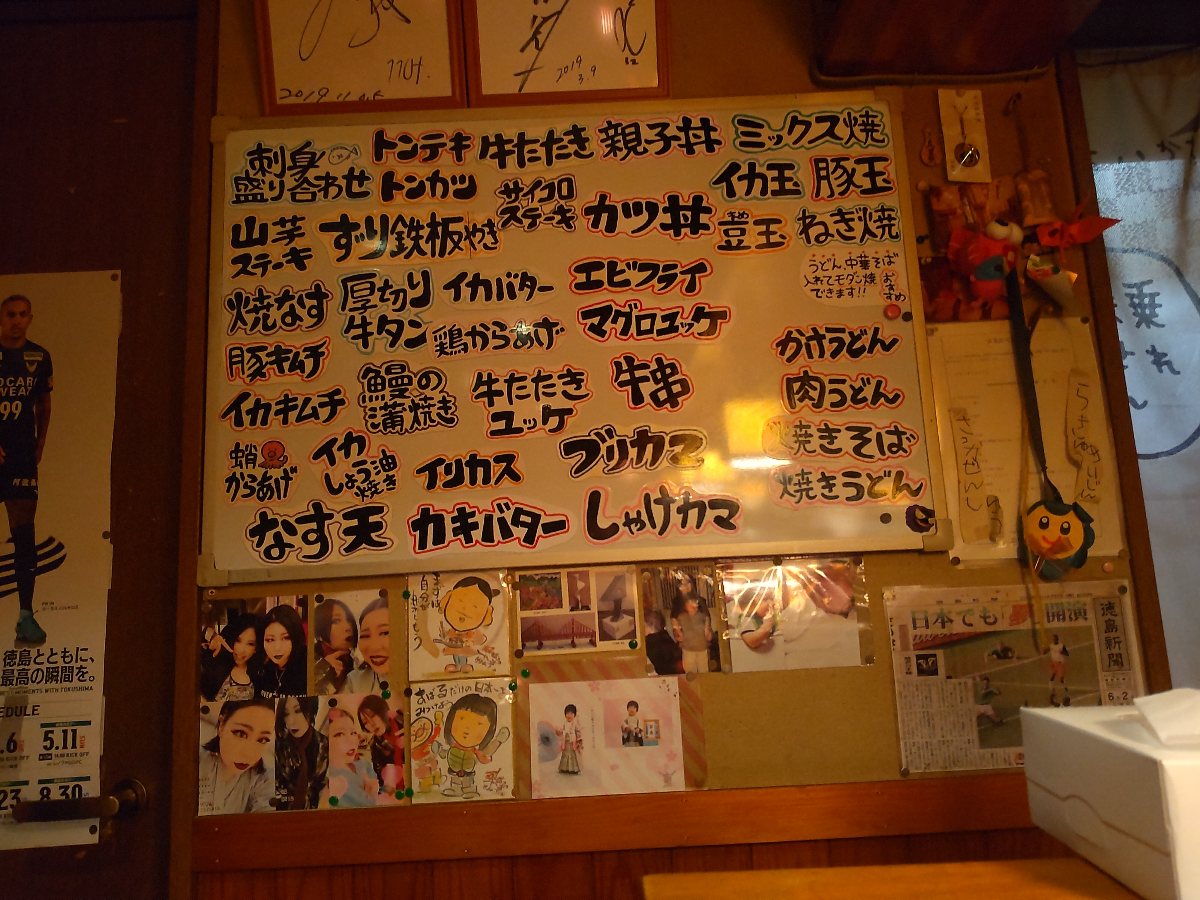 2019.11.
2019
3.9
刺身
盛り合わせ
トンテキ
トンカツ
牛たたき
サイコロ
ステーキ
親子丼
カツ丼
ミックス焼
イカ玉
豚玉
豆玉
ねぎ焼
うどん、中華そば
入れてモダン焼
できます!!
おすすめ
山芋
ステーキ
ずり鉄板やき
焼なす
厚切り
牛タン
イカバター
エビフライ
鶏からあげ
マグロユッケ
豚キムチ
イカキムチ
鰻の
蒲焼き
牛たたき
ユッケ
牛串
かけうどん
肉うどん
焼きそば
焼きうどん
蛸
からあげ
イカ
しょう油
焼き
イリカス
ブリカマ
なす天
カキバター
しゃけカマ
99
徳島とともに、
最高の瞬間を。
MOMENTS WITH TOKUSHIMA
EDULE
5.11
8.30
日本でも
開演
徳島新聞